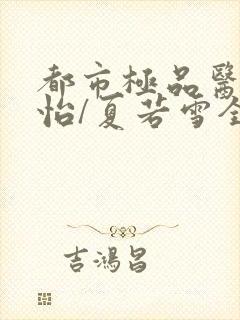 都市極品醫
怡/夏若雪全
吉鴻昌